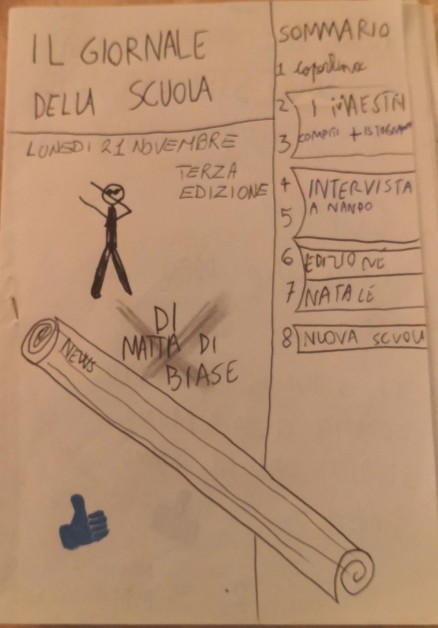 IL GIORNALE
DELLA SCUOLA
LUNEDI 21 NOVEMBRE
TERZA
EDIZIONE
DI
MATTIA DI
BIASE
NEWS
SOMMARIO
1 copertina
2 I MAESTRI
3 COMPITI + ISTAGRAM
4 INTERVISTA
5 A NANDO
6 EDIZIONE
7 NATALE
8 NUOVA SCUOL